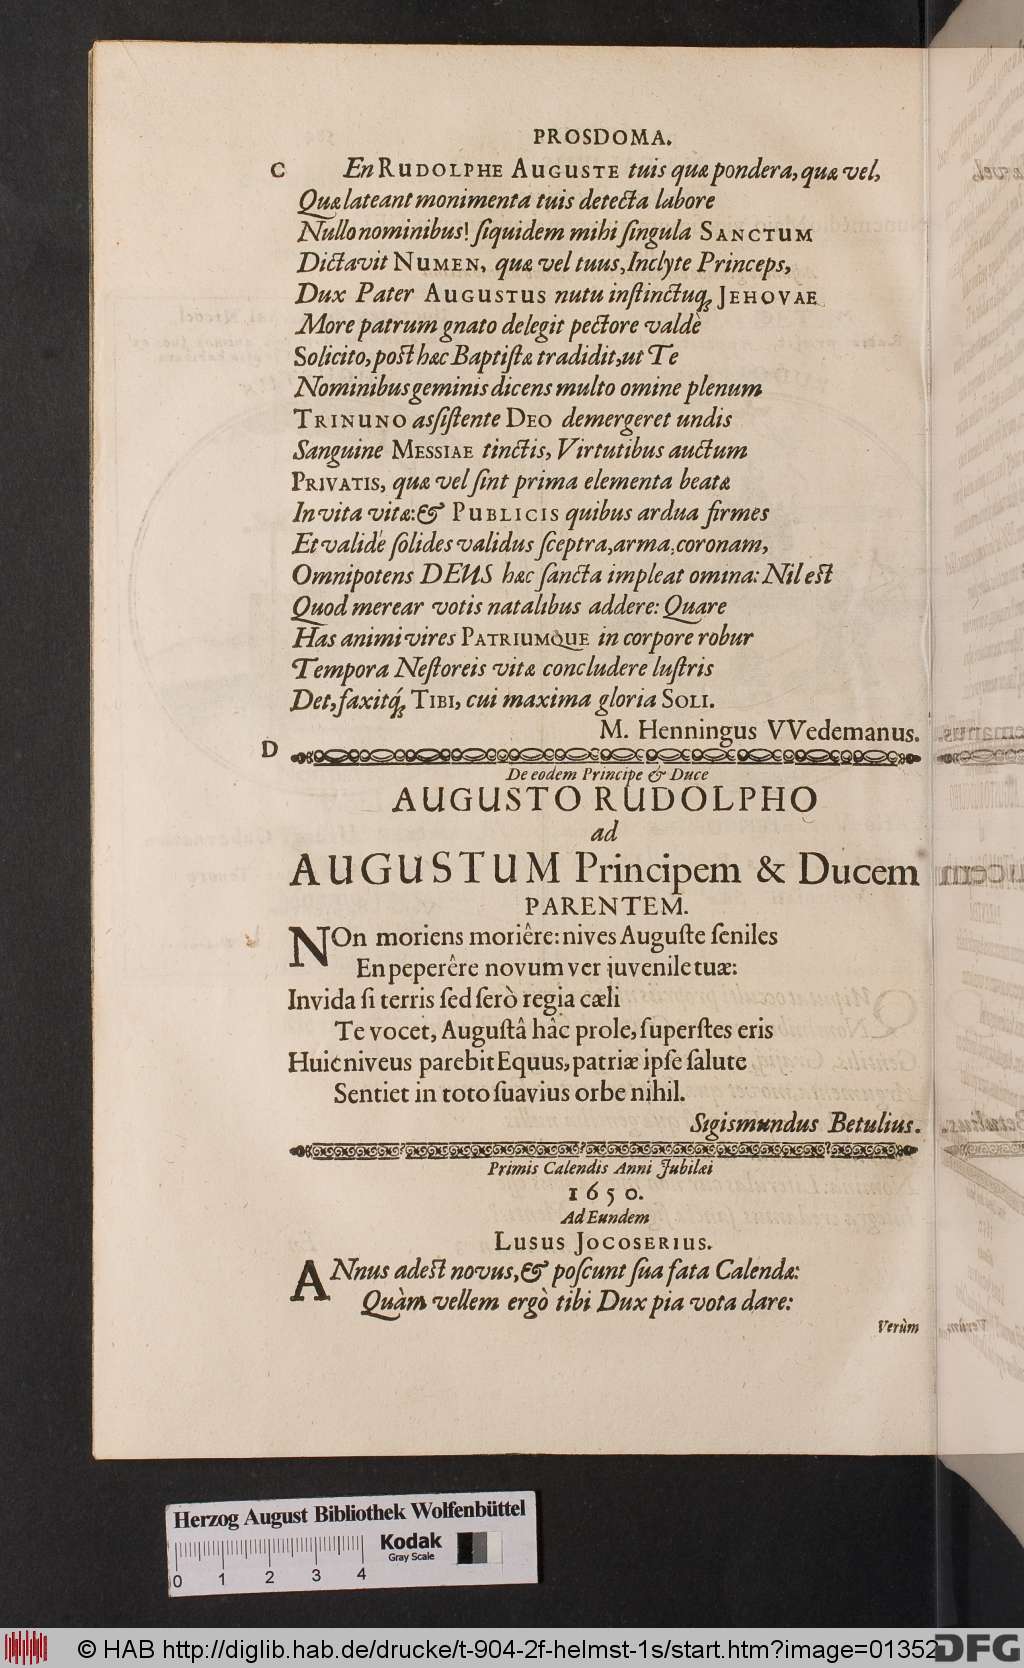 PROSDOMA.
C En RUDOLPHE AUGUSTE tuis quæ pondera, quæ vel,
Quæ lateant monimenta tuis detecta labore
Nullo nominibus! ſiquidem mihi ſingula SANCTUM
Dictavit NUMEN, quæ vel tuus, Inclyte Princeps,
Dux Pater AUGUSTUS nutu inſtinctuq́; JEHOVAE
More patrum gnato delegit pectore valdè
Solicito, poſt hæc Baptiſtæ tradidit, ut Te
Nominibus geminis dicens multo omine plenum
TRINUNO aſſiſtente DEO demergeret undis
Sanguine MESSIAE tinctis, Virtutibus auctum
PRIVATIS, quæ vel ſint prima elementa beatæ
In vita vitæ: & PUBLICIS quibus ardua firmes
Et validè ſolides validus ſceptra, arma, coronam,
Omnipotens DEUS hæc ſancta impleat omina: Nil eſt
Quod merear votis natalibus addere: Quare
Has animi vires PATRIUMQUE in corpore robur
Tempora Neſtoreis vitæ concludere luſtris
Det, faxitq́; TIBI, cui maxima gloria SOLI.
M. Henningus VVedemanus.
D
De eodem Principe & Duce
AUGUSTO RUDOLPHO
ad
AUGUSTUM Principem & Ducem
PARENTEM.
NOn moriens moriêre: nives Auguſte ſeniles
En peperêre novum ver juvenile tuæ:
Invida ſi terris ſed ſerò regia cæli
Te vocet, Auguſtâ hâc prole, ſuperſtes eris
Huic niveus parebit Equus, patriæ ipſe ſalute
Sentiet in toto ſuavius orbe nihil.
Sigismundus Betulius.
Primis Calendis Anni Jubilæi
1650.
Ad Eundem
LUSUS JOCOSERIUS.
ANnus adeſt novus, & poſcunt ſua fata Calendæ:
Quàm vellem ergò tibi Dux pia vota dare:
Verùm
Herzog August Bibliothek Wolfenbüttel
Kodak
Gray Scale
0 1 2 3 4
© HAB http://diglib.hab.de/drucke/t-904-2f-helmst-1s/start.htm?image=01352
DFG